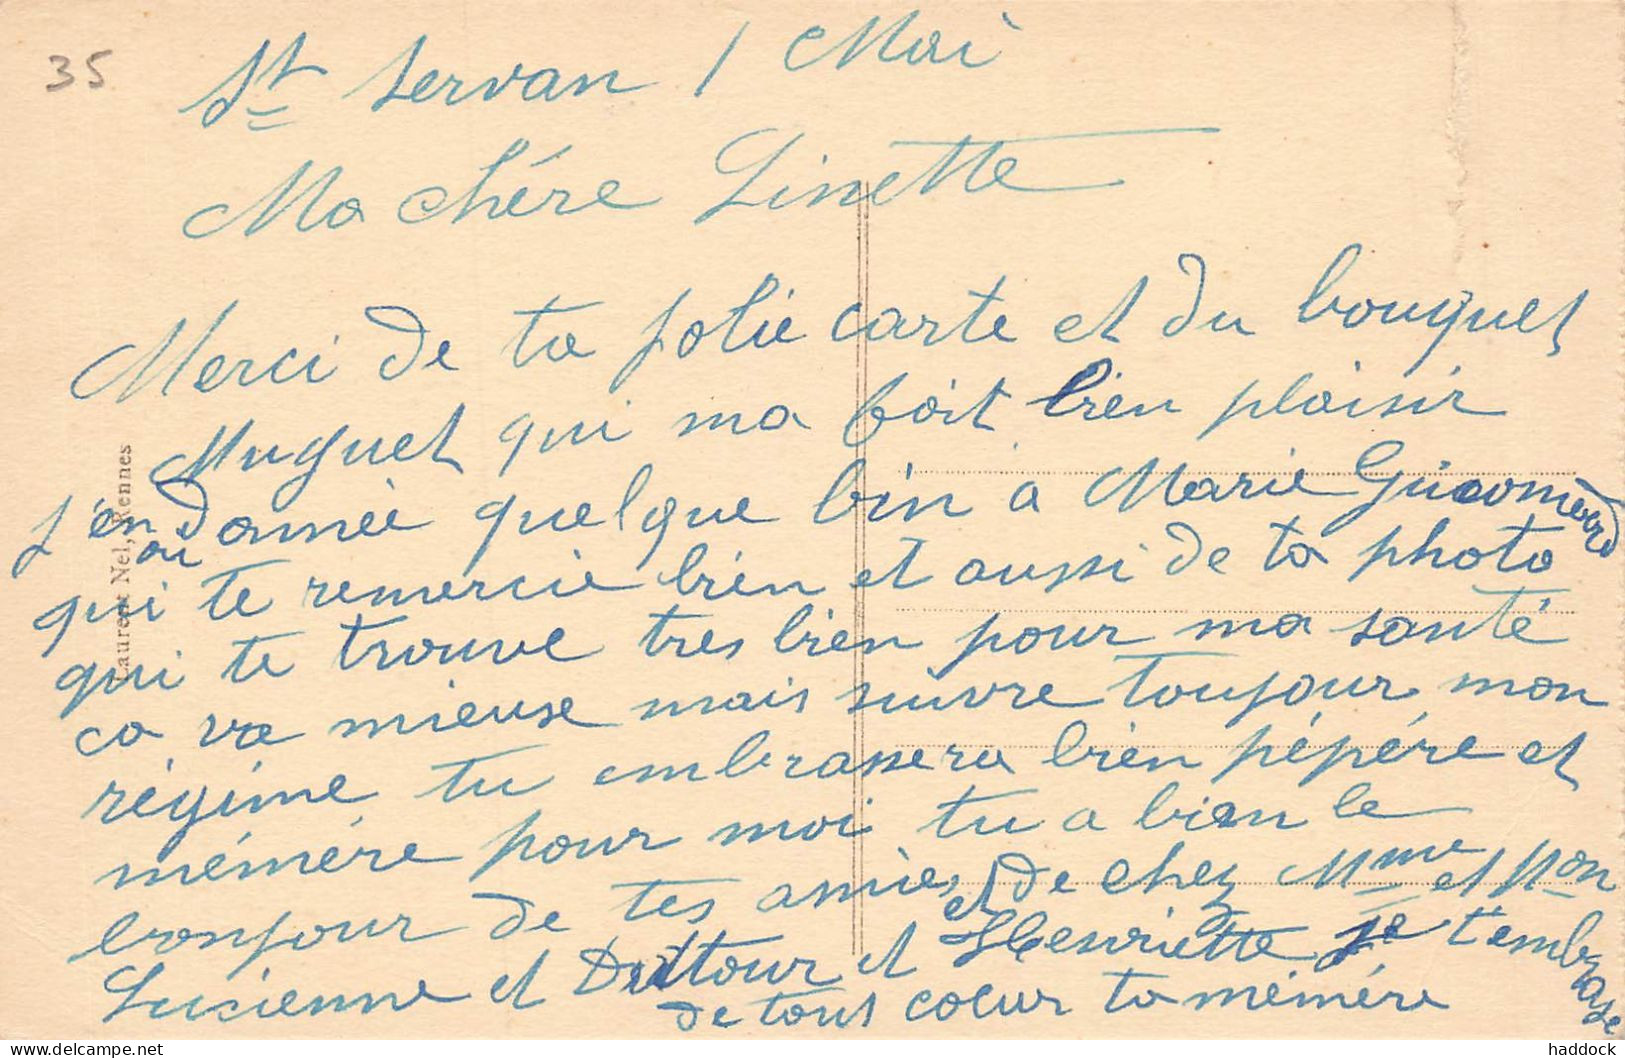 35
St Servan 1 Mai
Ma chére Linette
Merci de ta jolie carte et du bouquet
Muguet qui ma fait bien plaisir
j'en ai donnée quelque brin a Marie
qui te remercie bien et aussi de ta photo
qui te trouve tres bien pour ma santé
ca va mieuse mais suivre toujour mon
régime tu embrassera bien pépére et
méméré pour moi tu a bien le
bonjour de tes amies et de chez Mme et Mon
Lucienne et Dutour et Henriette je t'embrasse
de tout coeur ta mémére
Laurent Nel, Rennes
https://www.delcampe.net
haddock